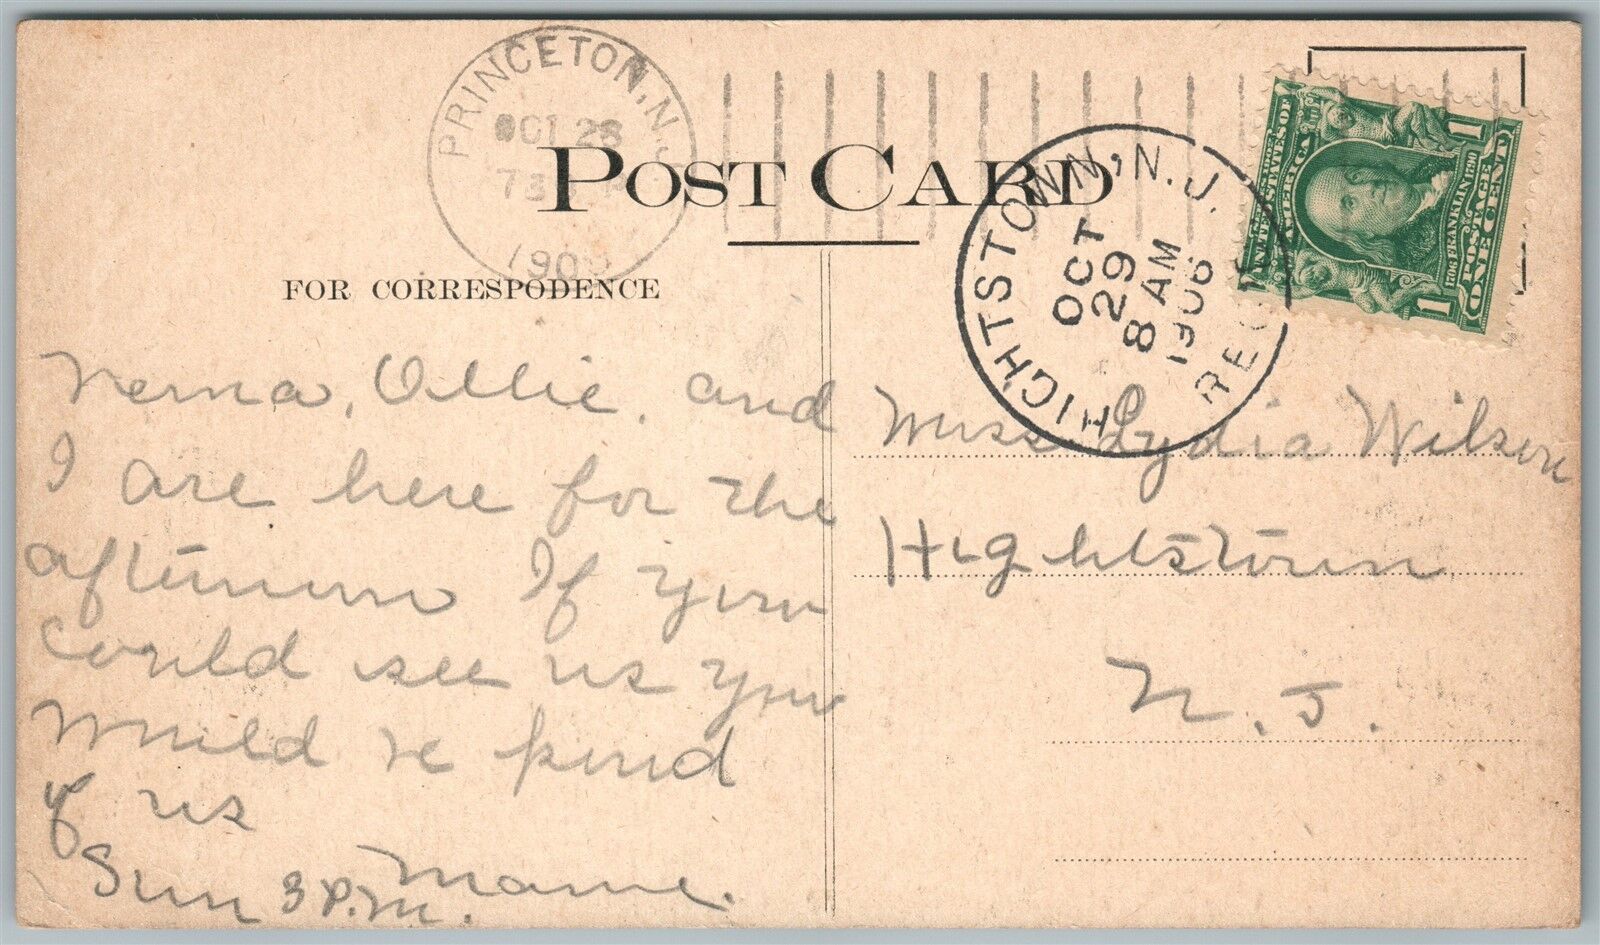 PRINCETON, N.J.
OCT 28
190
POST CARD
FOR CORRESPODENCE
HIGHTSTOWN, N.J.
OCT
29
8 AM
1906
REC
UNITED STATES OF
AMERICA
1706 FRANKLIN 1790
POSTAGE
ONE CENT
1 1
Nema, Ollie, and
I are here for the
afternoon If you
could see us you
would be proud
of us
Mame.
Sun 3 P.M.
Miss Lydia Wilson
Hightstown
N. J.